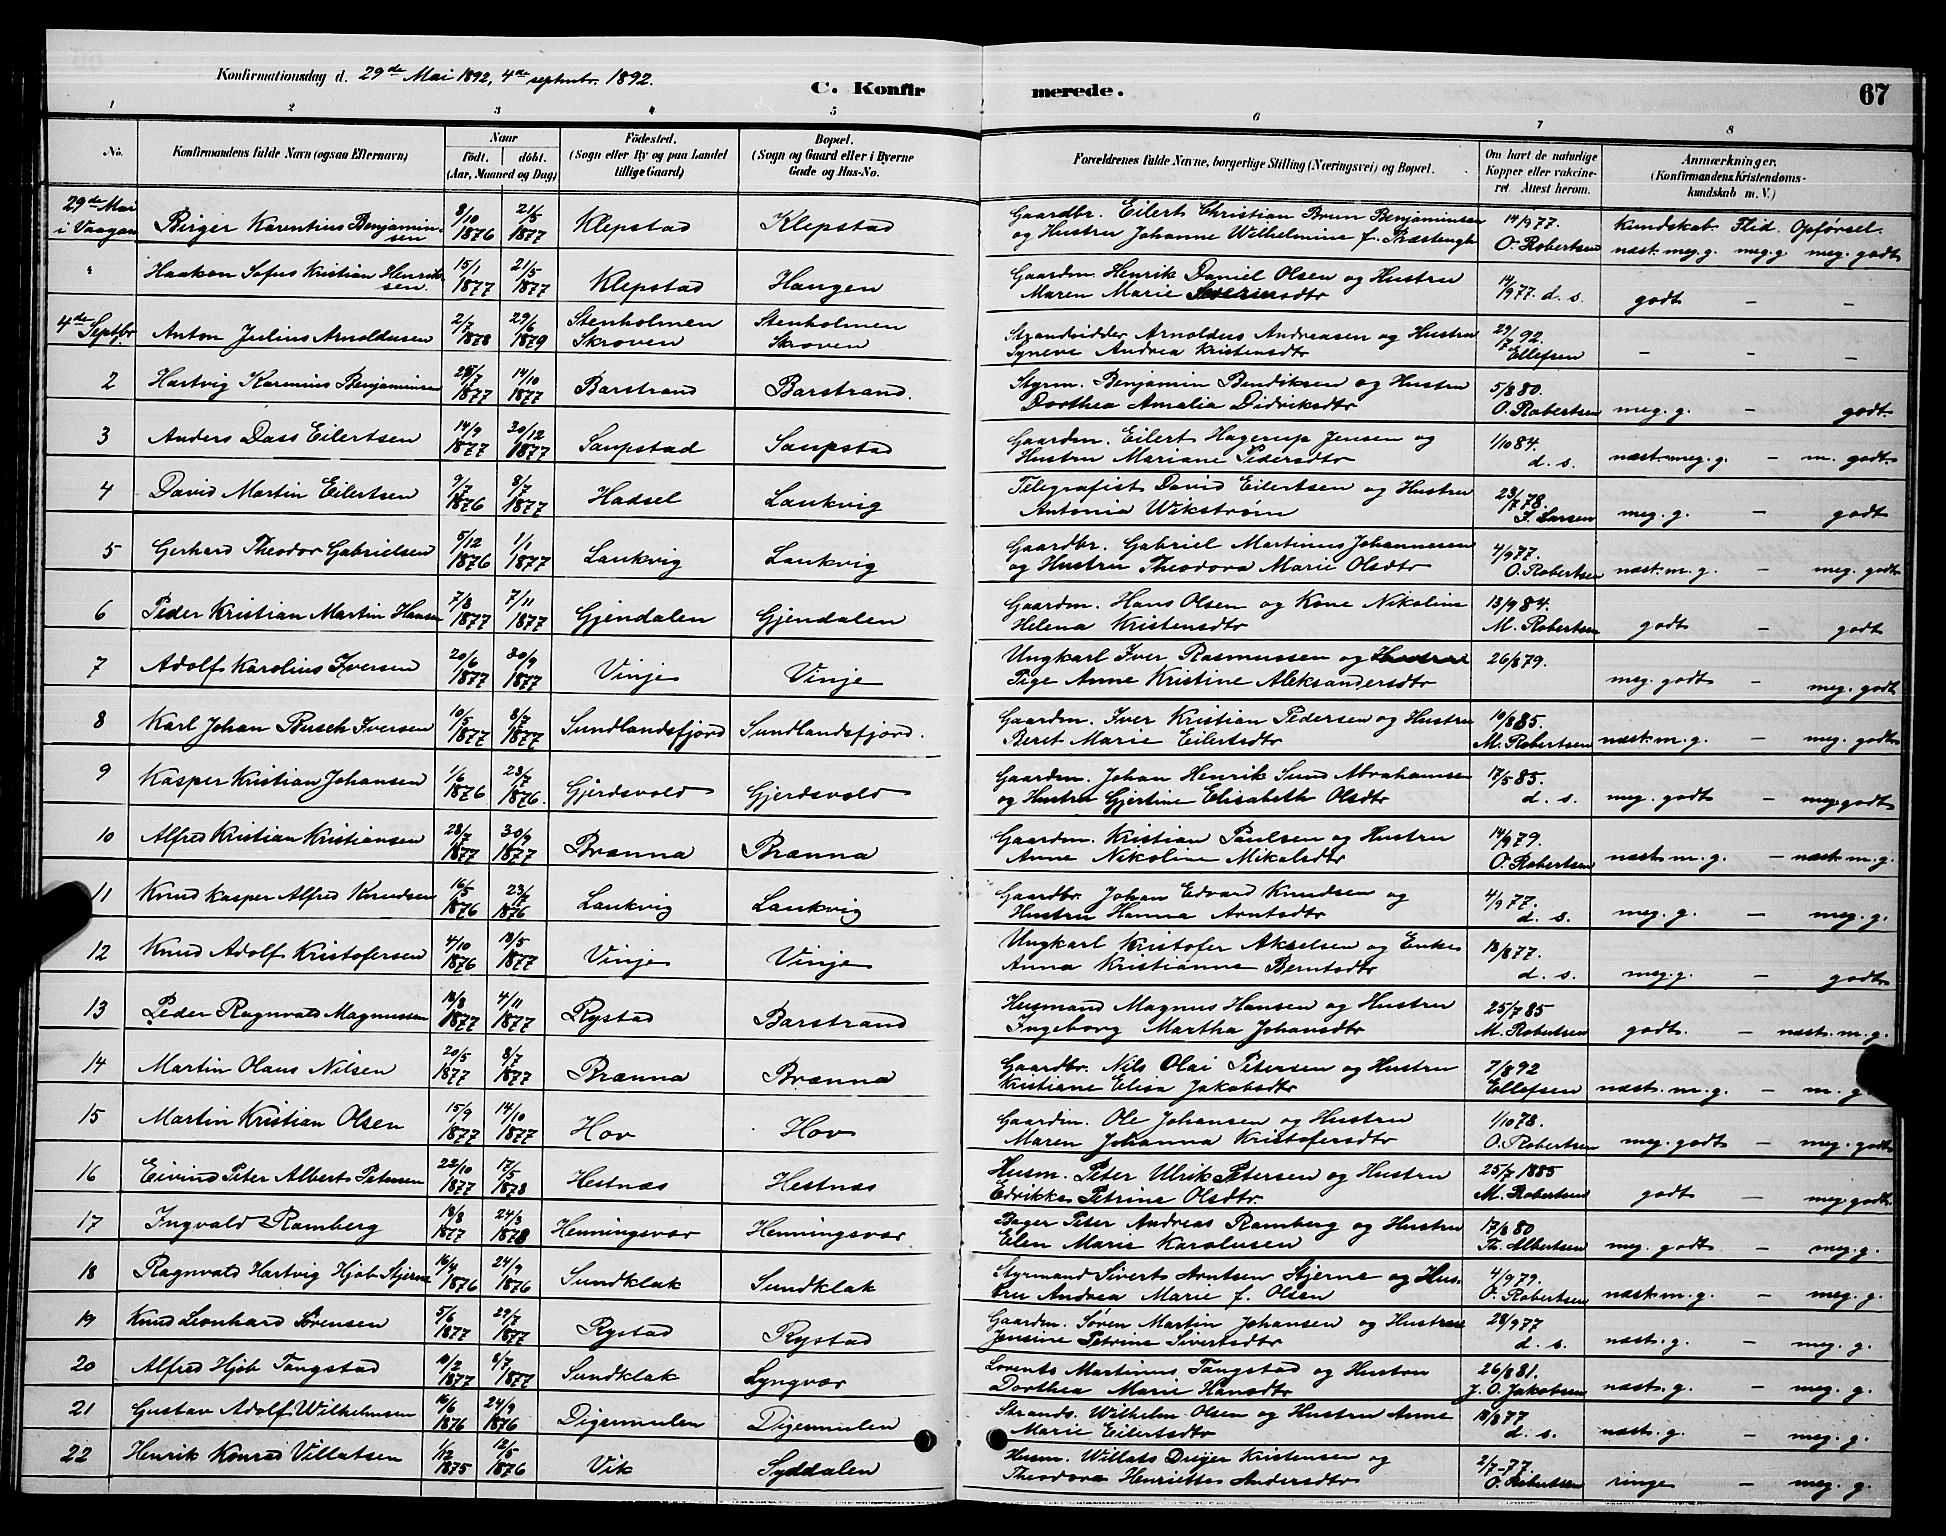 Konfirmationsdag d. 29de Mai 1892, 4de septembr. 1892.
C. Konfirmerede.
67
1 2 3 4 5 6 7 8
No.
Konfirmandens fulde Navn (ogsaa Efternavn)
Naar
födt. döbt.
(Aar, Maaned og Dag)
Födested.
(Sogn eller By og paa Landet
tillige Gaard)
Bopæl.
(Sogn og Gaard eller i Byerne
Gade og Hus-No.
Forældrenes fulde Navne, borgerlige Stilling (Næringsvei) og Bopæl.
Om havt de naturlige
Kopper eller vakcine-
ret. Attest herom.
Anmærkninger.
(Konfirmandens Kristendoms-
kundskab m. V.)
29de Mai i Vaagan Birger Karentius Benjaminsen 8/10 1876 21/5 1877 Klepstad Klepstad Gaardbr. Eilert Christian Brun Benjaminsen 14/9 77. Kundskab. Flid. Opførsel.
og Hustru Johanne Wilhelmine f. O. Robertsen næst. meg. g. meg. g meg. godt
" Haakon Sofus Kristian Henriksen. 15/1 1877 21/5 1877 Klepstad Haugen Gaardm. Henrik Daniel Olsen og Hustru
Maren Marie 14/9 77. d. s. godt — —
4de Septbr Anton Julius Arnoldusen 2/7 1878 29/6 1879 Stenholmen Skroven Stenholmen Skroven Strandsidder Arnoldus Andreasen og Hustru 29/7 92.
Syneve Andrea Kristensdtr Ellefsen — — —
2 Hartvig Karenius Benjaminsen 1877 14/10 1877 Barstrand Barstrand. Styrm. Benjamin Bendiksen og Hustru 5/8 80.
Dorthea Amalia Didriksdtr O. Robertsen meg. g. — godt
3 Anders Dass Eilertsen 14/9 1877 30/12 1877 Saupstad Saupstad Gaardm. Eilert Hagerup Jensen og 1/10 84.
Hustru Mariane Pedersdtr d. s. næst. meg. g. — m. godt.
4 David Martin Eilertsen 9/7 1876 8/7 1877 Hadsel Laukvig Telegrafist David Eilertsen og Hustru 23/7 78.
Antonia Wikstrøm Larsen meg. g. — godt
5 Gerhard Theodor Gabrielsen 5/12 1876 1/1 1877 Laukvig Laukvig Gaardbr. Gabriel Martinus Johannesen 4/9 77.
og Hustru Theodora Marie Olsdtr O. Robertsen næst. m. g. — meg. godt
6 Peder Kristian Martin Hansen 7/8 1877 7/11 1877 Gjendalen Gjendalen Gaardm. Hans Olsen og Kone Nikoline 13/9 84.
Helena Kristensdtr M. Robertsen godt — godt
7 Adolf Karolius Iversen 20/6 1877 30/9 1877 Vinje Vinje Ungkarl Iver Rasmussen og 26/8 79.
Pige Anne Kristine Aleksandersdtr meg. godt — meg. godt
8 Karl Johan Busch Iversen 10/5 1877 8/7 1877 Sundlandsfjord Sundlandsfjord. Gaardm. Iver Kristian Pedersen og Hustru 10/8 85.
Beret Marie Eilertsdtr M. Robertsen næst. m. g. — meg. godt
9 Kasper Kristian Johansen 1/6 1876 23/7 1876. Gjerdsvold Gjerdsvold Gaardm. Johan Henrik Sund Abrahamsen 17/5 85.
og Hustru Gjertine Elisabeth Olsdtr d. s. meg. godt — meg godt
10 Alfred Kristian Kristiansen 28/7 1877 30/9 1877 Brænna Brænna Gaardm. Kristian Paulsen og Hustru 14/9 79.
Anne Nikoline Mikalsdtr O. Robertsen næst. m. g. — næst. m. g.
11 Knud Kasper Alfred Knudsen 16/5 1876 23/7 1876 Laukvig Laukvig Gaardbr. Johan Edvard Knudsen og 4/9 77.
Hustru Hanna Arntsdtr d. s. meg. g. — meg. g.
12 Knud Adolf Kristofersen 4/10 1876 13/5 1877 Vinje Vinje Ungkarl Kristofer Akselsen og Enke 13/8 77.
Anna Kristianne Berntsdtr d. s. meg. g. — godt
13 Peder Ragnvald Magnussen 18/8 1877 4/11 1877 Rystad Barstrand Husmand Magnus Hansen og Hustru 25/7 85
Ingeborg Martha Johansdtr M. Robertsen godt. — næst. m. g.
14 Martin Olaus Nilsen 20/5 1877 8/7 1877 Brænna Brænna Gaardbr. Nils Olai Petersen og Hustru 7/8 92
Kristiane Elisa Jakobsdtr Ellefsen næst. m. g. — m. g.
15 Martin Kristian Olsen 15/9 1877 14/10 1877 Hov Hov Gaardm. Ole Johansen og Hustru 1/10 78.
Maren Johanna Kristofersdtr O. Robertsen meg. godt — meg. godt
16 Eivind Peter Albert Petersen 22/10 1877 17/5 1878 Hestnæs Hestnæs Husm. Peter Ulrik Petersen og Hustru 25/7 1885
Edrikke Petrine Olsdtr M. Robertsen godt — meg godt
17 Ingvald Ramberg 18/8 1877 24/3 1878 Henningsvær Henningsvær Bager Peter Andreas Ramberg og Hustru 17/8 80
Elen Marie Karolusen Th. Albertsen meg. godt — meg. g.
18 Ragnvald Hartvig Hjob Stjerne 16/4 1876 24/9 1876 Sundklak Sundklak Styrmand Sivert Arntsen Stjerne og Hus- 4/9 79.
tru Andrea Marie f. Olsen O. Robertsen næst. m. g. — meg. g.
19 Knud Leonhard Sørensen 5/6 1877 29/7 1877 Rystad Rystad Gaardm. Søren Martin Johansen og Hustru 28/9 77
Jensine Petrine Sivertsdtr d. s. næst. g. — meg. g.
20 Alfred Hjob Tangstad 10/2 1877 8/7 1877 Sundklak Lyngvær Lorents Martinus Tangstad og Hustru 26/8 81.
Dorthea Marie Hansdtr J. O. Jakobsen næst. g. — meg. g.
21 Gustav Adolf Wilhelmsen 16/6 1876 24/9 1876 Digermulen Digermulen Strands. Wilhelm Olsen og Hustru Anne 18/8 77
Marie Eilertsdtr d. s. næst. g. — meg. g.
22 Henrik Konrad Villatsen 1/12 1875 12/5 1876 Vik Syddalen Husm. Willats Dreyer Kristensen og 2/7-77
Theodora Henriette Andersdtr O. Robertsen ringe — meg. g.